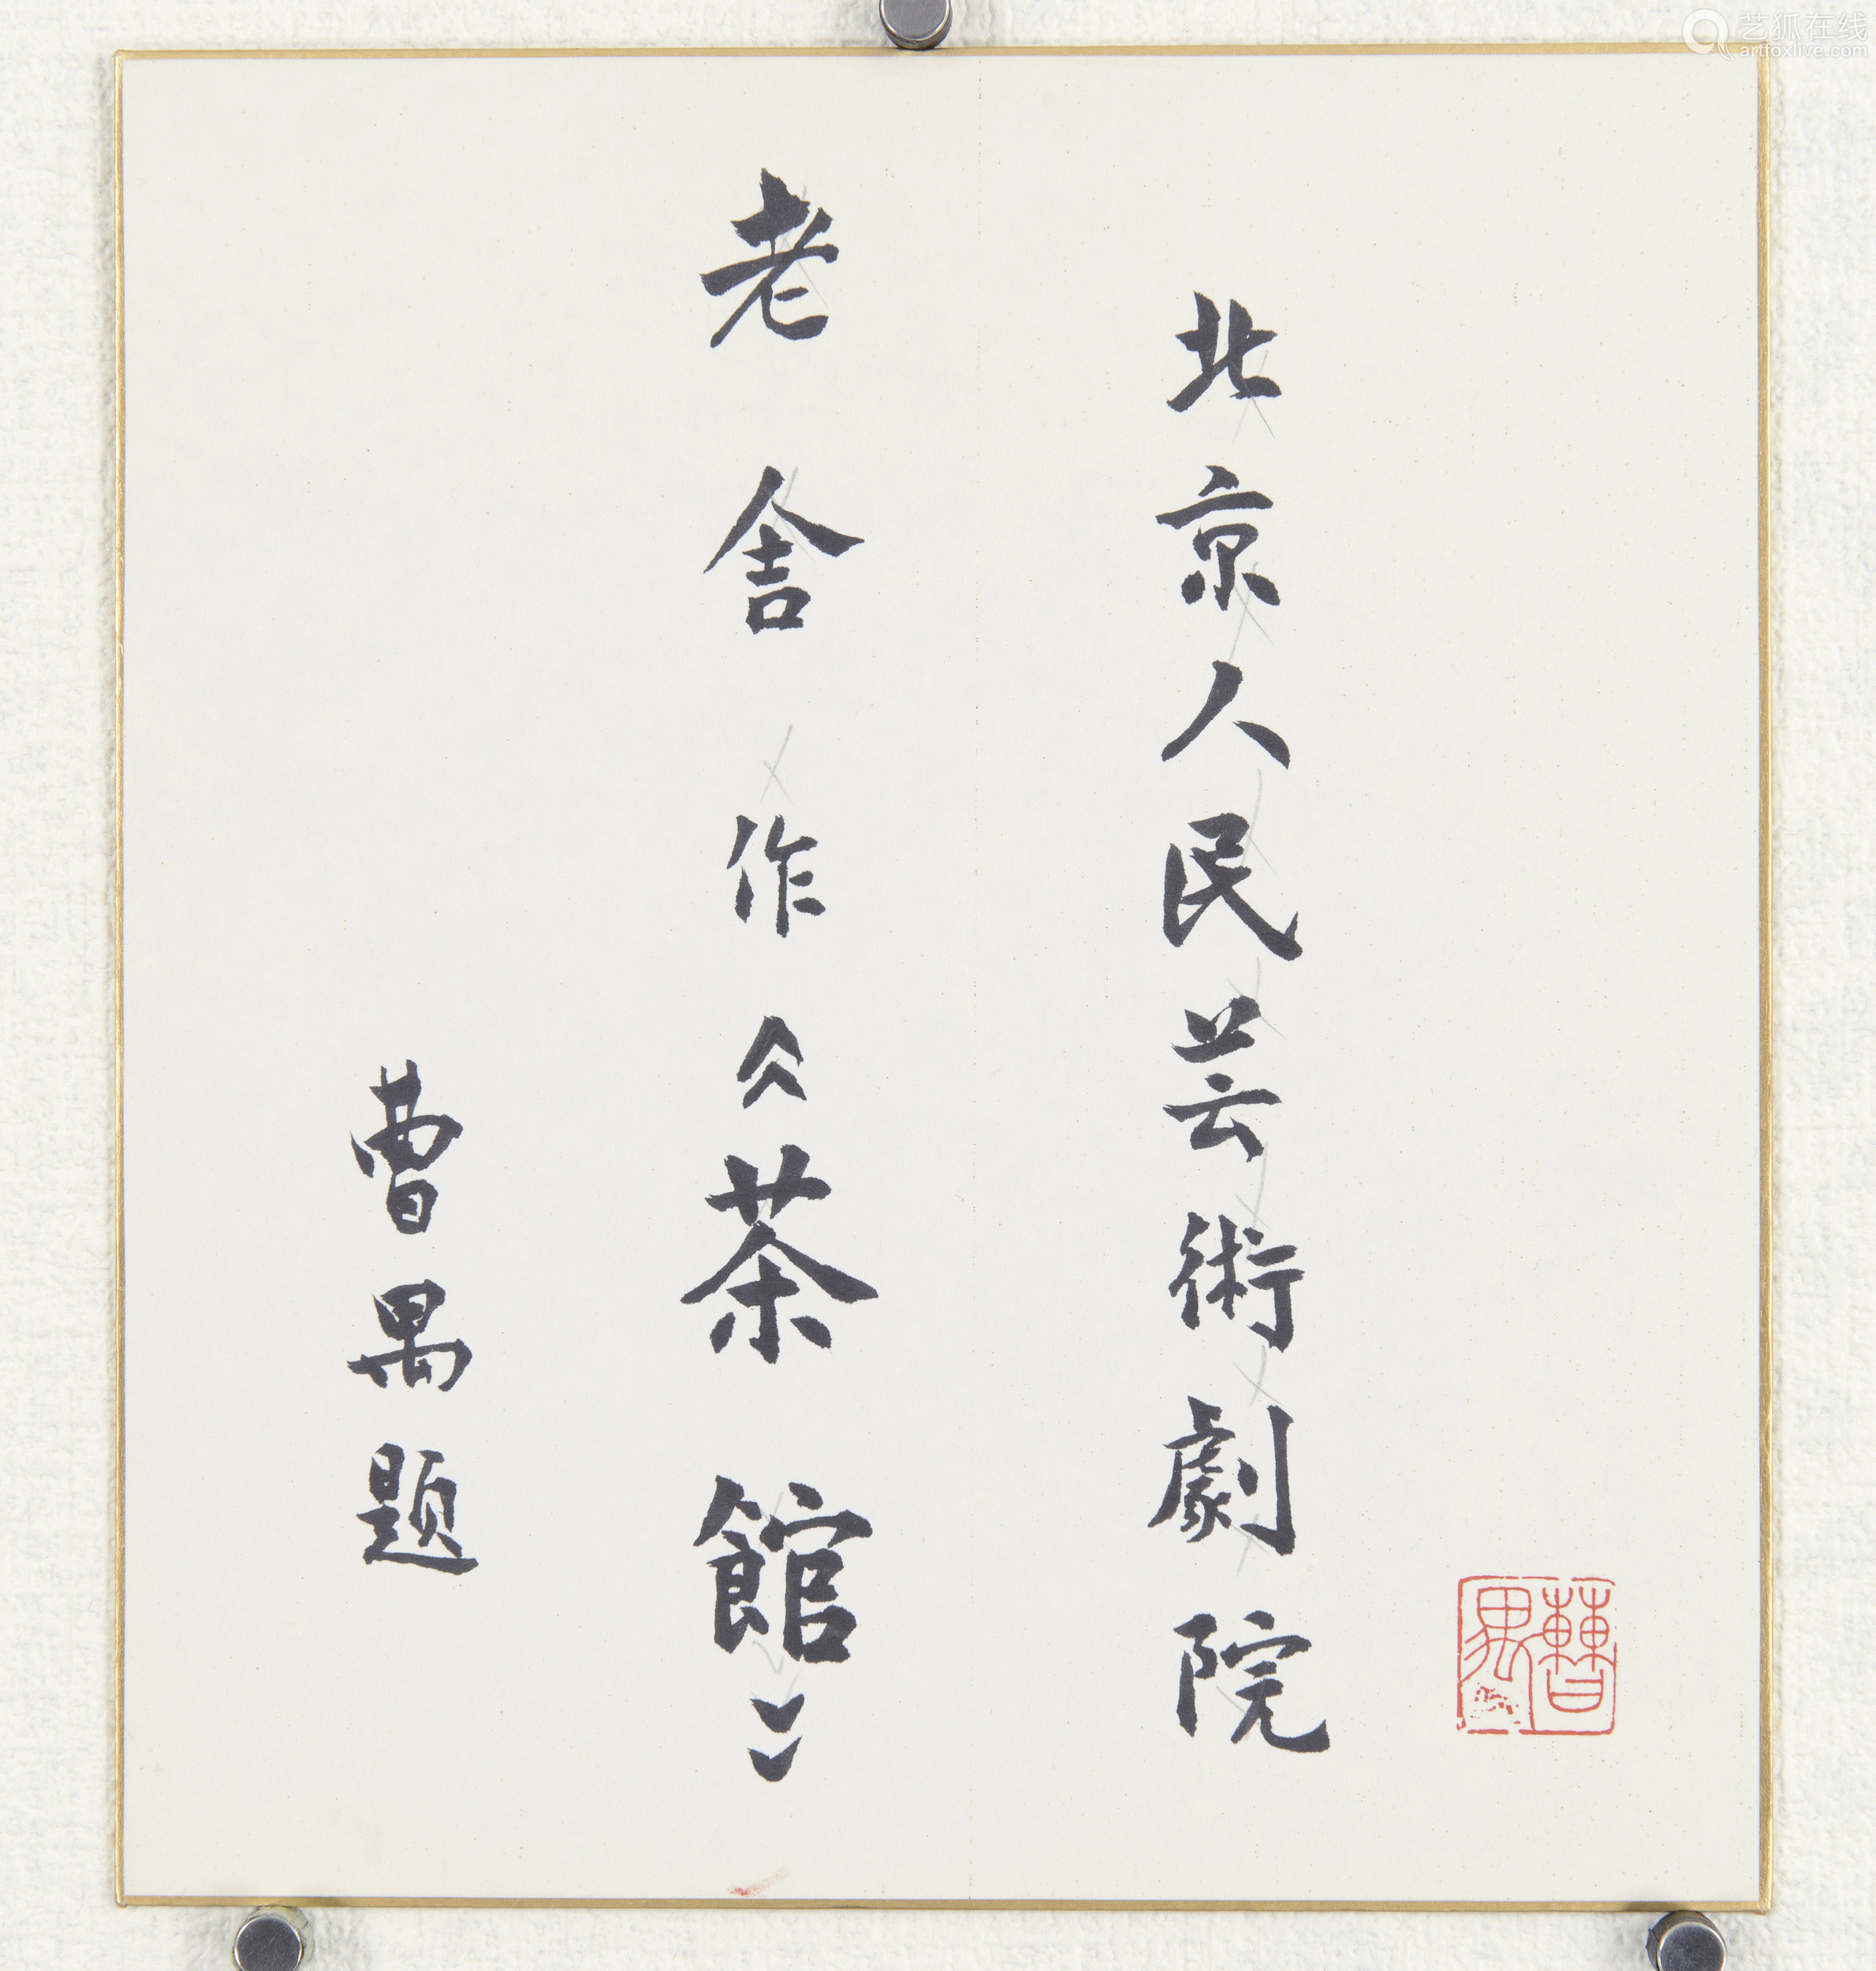 北京人民芸術劇院
老舍作《茶館》
曹禺题
曹禺
艺狐在线
artfoxlive.com